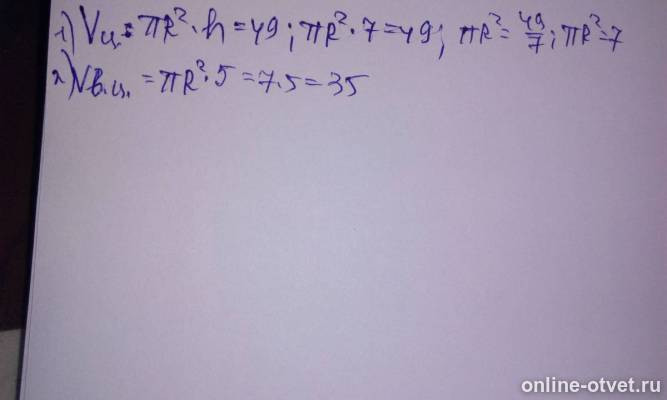 1) Vц. = πR²·h = 49; πR²·7 = 49; πR² = 49/7; πR² = 7
2) Vв.ц. = πR²·5 = 7·5 = 35
online-otvet.ru